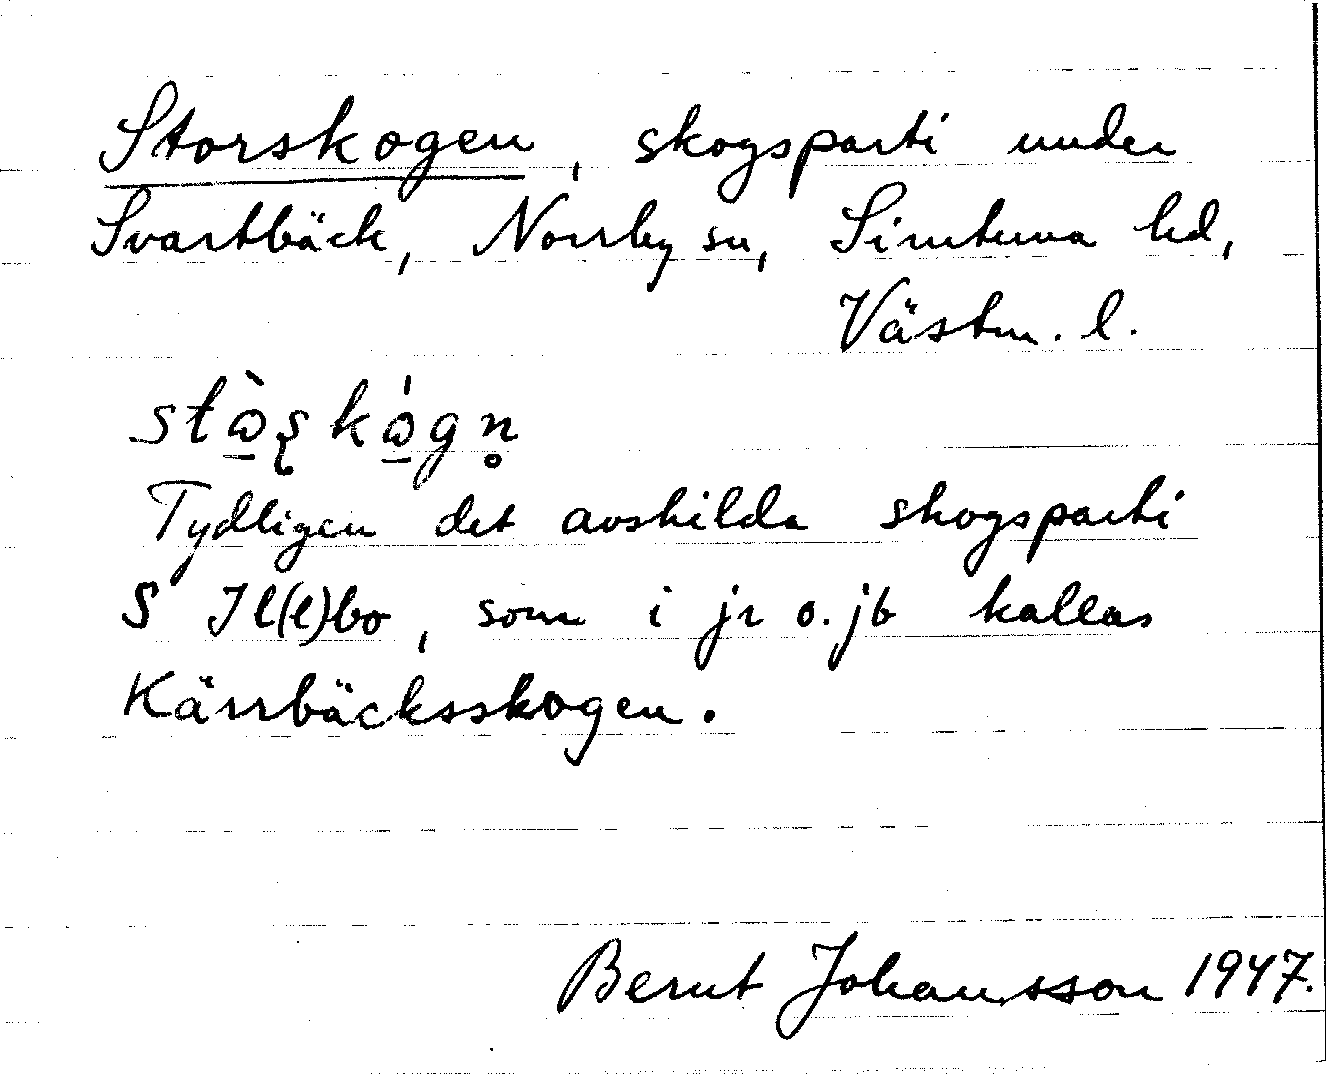 Storskogen, skogsparti under
Svartbäck, Norrby sn, Simtuna hd,
Västm. l.
stꞷ̠̀ʂkꞷ̠́gn̥
Tydligen det avskilda skogsparti
S Il(l)bo, som i jr o. jb kallas
Kärrbäcksskogen.
Bernt Johansson 1947.